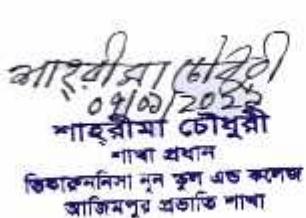 শাহরীমা চৌধুরী
শাহরীমা চৌধুরী
শাখা প্রধান
ভিকারুননিসা নূন স্কুল এন্ড কলেজ
আজিমপুর প্রভাতি শাখা